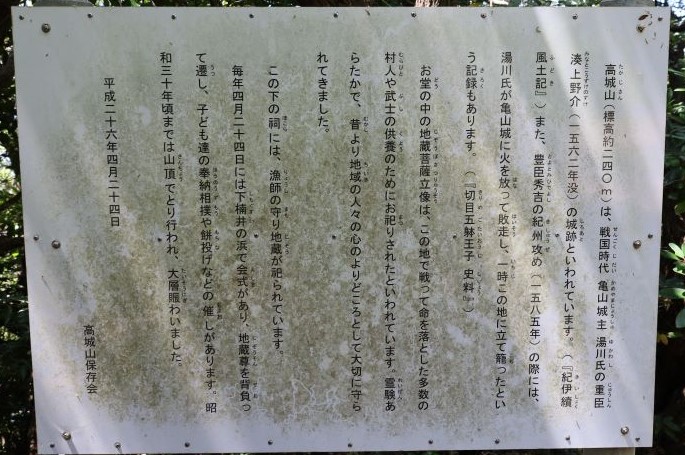 高城山（標高約二四〇ｍ）は、戦国時代 亀山城主 湯川氏の重臣
湊上野介（一五六二年没）の城跡といわれています。（『紀伊續
風土記』）また、豊臣秀吉の紀州攻め（一五八五年）の際には、
湯川氏が亀山城に火を放って敗走し、一時この地に立て籠ったとい
う記録もあります。（『切目五躰王子 史料』）
お堂の中の地蔵菩薩立像は、この地で戦って命を落とした多数の
村人や武士の供養のためにお祀りされたといわれています。霊験あ
らたかで、昔より地域の人々の心のよりどころとして大切に守ら
れてきました。
この下の祠には、漁師の守り地蔵が祀られています。
毎年四月二十四日には下楠井の浜で会式があり、地蔵尊を背負っ
て遷し、子ども達の奉納相撲や餅投げなどの催しがあります。昭
和三十年頃までは山頂でとり行われ、大層賑わいました。
平成二十六年四月二十四日
高城山保存会